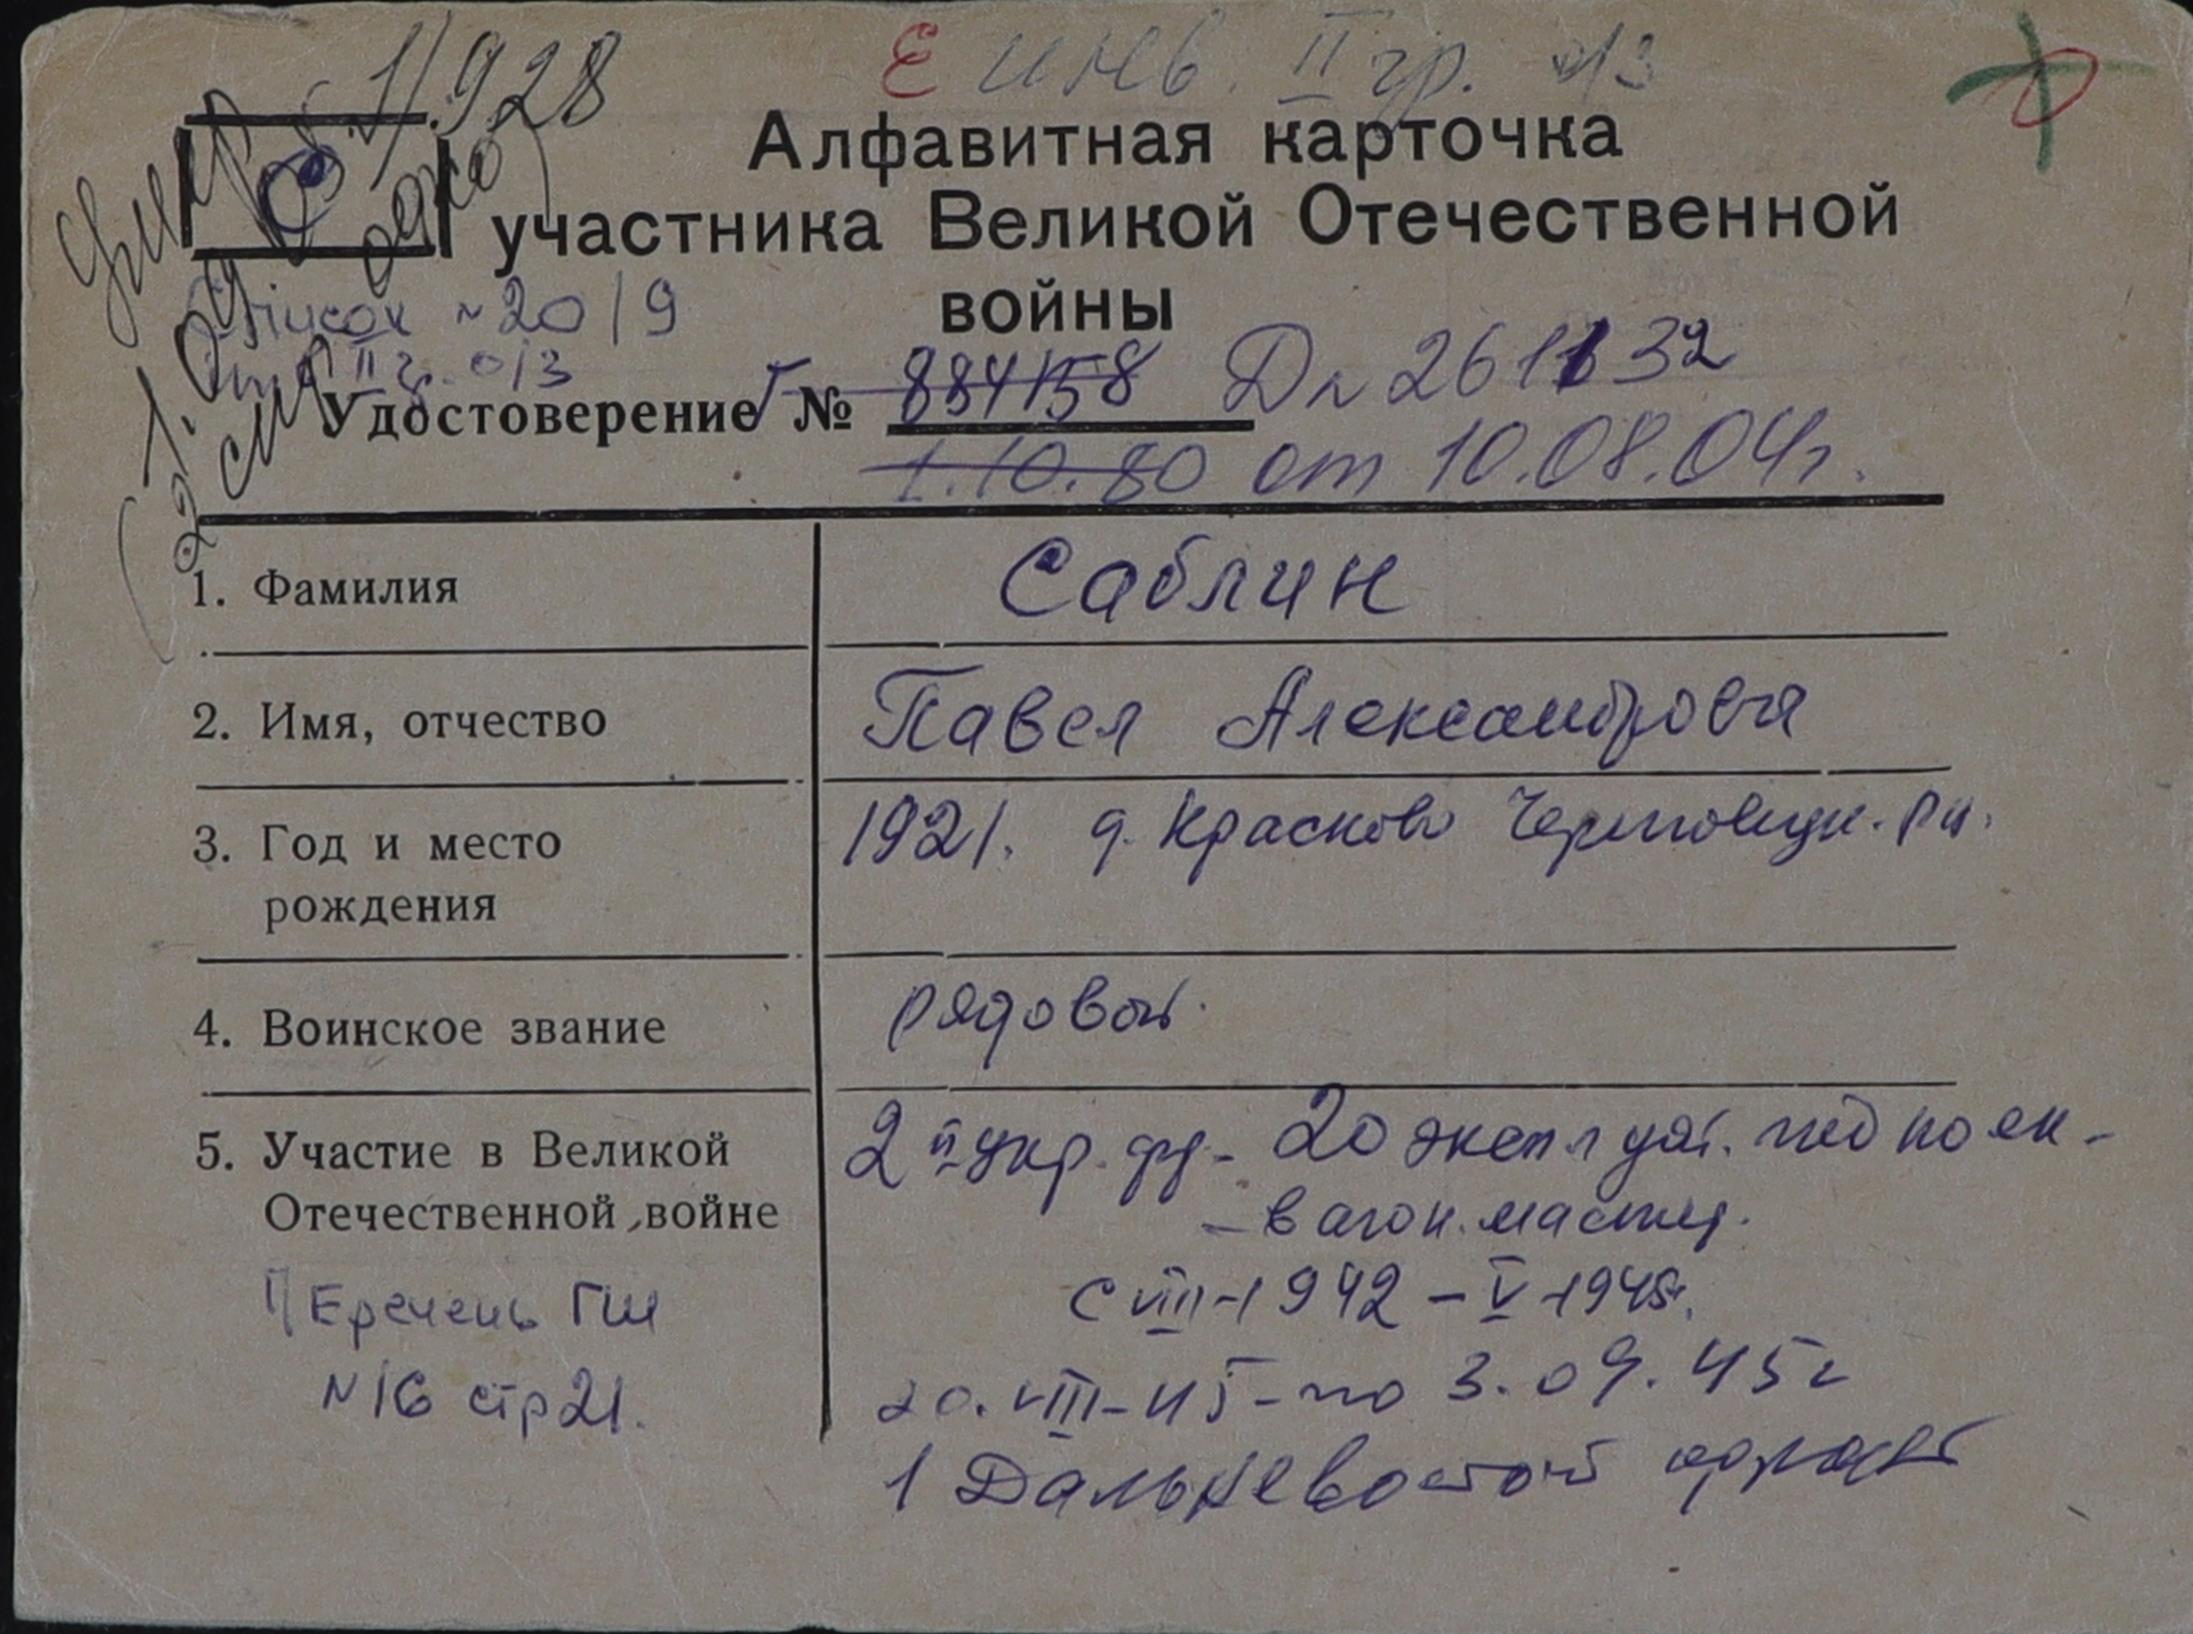 1/928
Е инв. II гр.
Алфавитная карточка
С
участника Великой Отечественной
войны
Список № 20/9
II гр. о/з
Удостоверение № 884158 Д № 261132
1.10.80 от 10.08.04г.
1. Фамилия
Саблин
2. Имя, отчество
Павел Александрович
3. Год и место
рождения
1921. д. Красково
4. Воинское звание
рядовой
5. Участие в Великой
Отечественной войне
2й укр. фр - 20 эксплуат.
- вагон. мастер.
с VIII-1942 - V-1945г.
20.VIII-45 - по 3.09.45г
1 Дальневосточ
Перечень ГШ
№16 стр 21.